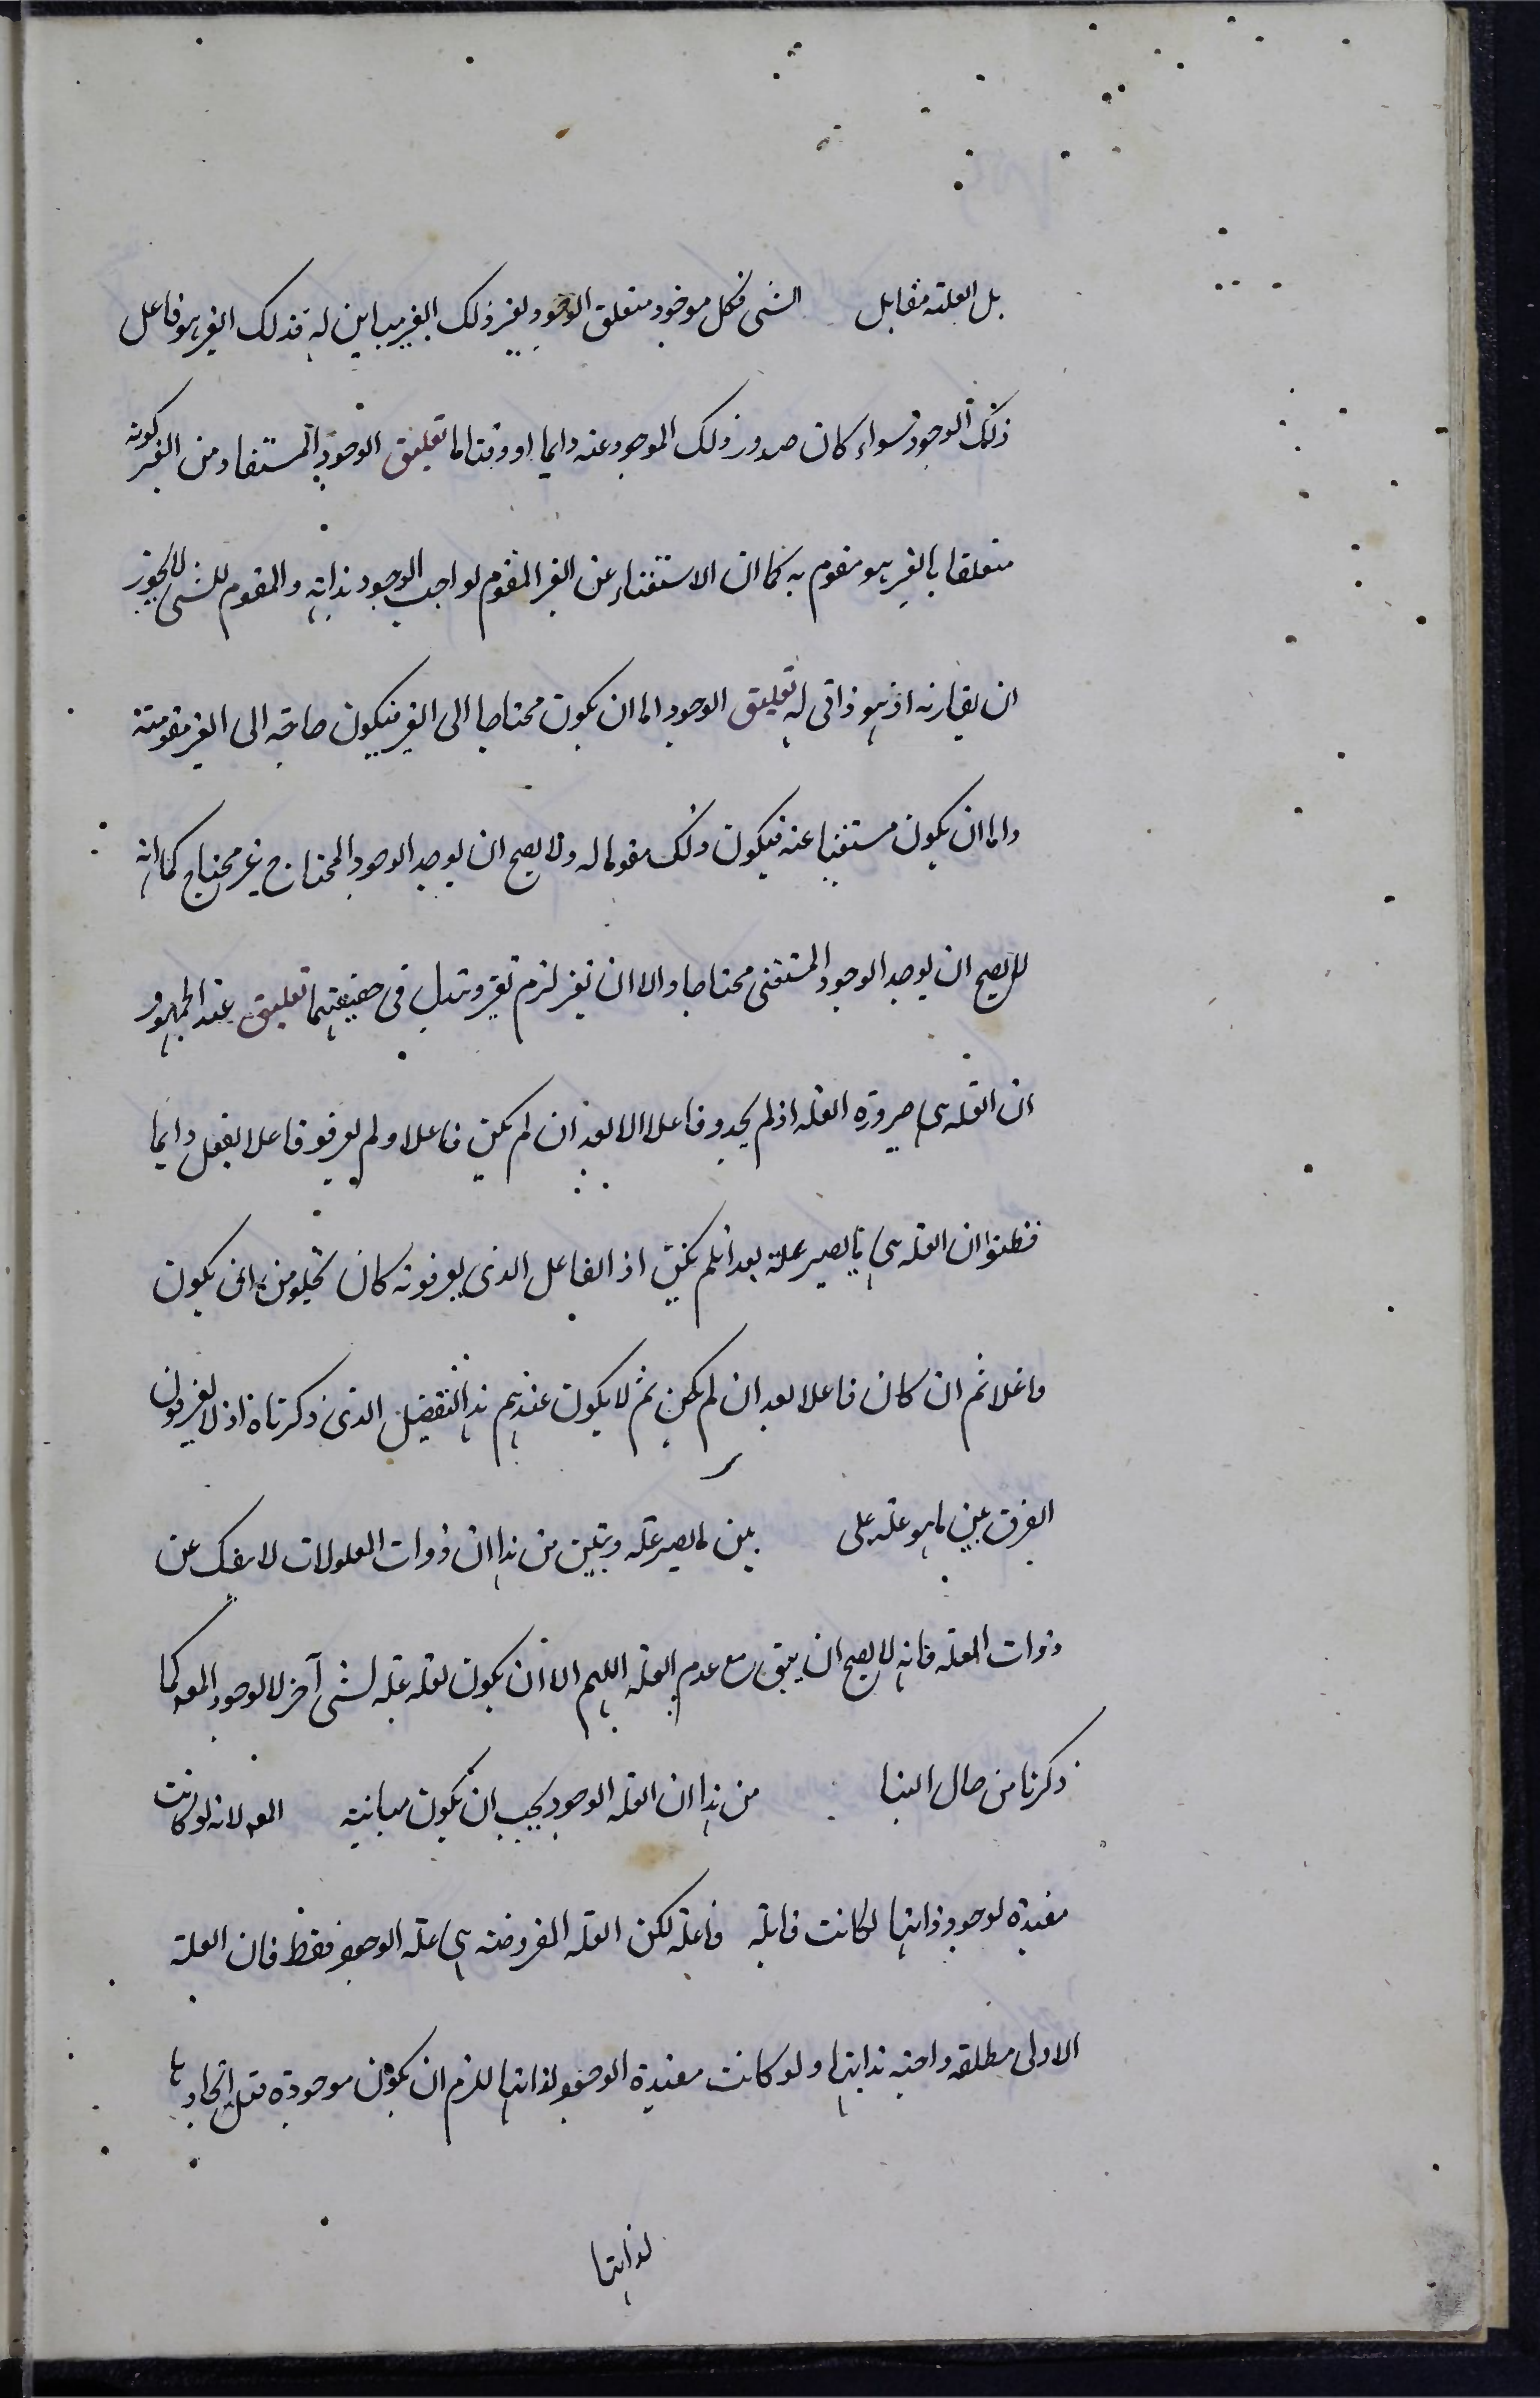 بل العلة مقابل الشى فكل موجود متعلق الوجود بغير ذلك الغير مباين له فذلك الغير هو فاعل
ذلك الوجود سواء كان صدور ذلك الموجود عنه دايما او وقتا ما تعليق الوجود المستفاد من الغير كونه
متعلقا بالغير هو مقوم به كما ان الاستغناء عن الغير المقوم لواجب الوجود بذاته والمقوم للشى لا يجوز
ان يفارنه اذ هو ذاتى له تعليق الوجود اما ان يكون محتاجا الى الغير فيكون حاجه الى الغير مقومته
واما ان يكون مستغنيا عنه فيكون ذلك مقوما له ولا يصح ان يوجد الوجود المحتاج غير محتاج كما انه
لا يصح ان يوجد الوجود المستغنى محتاجا والا ان تغير لزم تغير وتبدل فى حقيقتهما تعليق عند الجمهور
ان العله هى صيرورة العله اذ لم يجدو فاعلا الا بعد ان لم يكن فاعلا ولم يعرفو فاعلا بفعل دايما
فظنوا ان العله هى ما يصير علة بعد ان لم يكن اذ الفاعل الذى يعرفونه كان يخلو من ان يكون
فاعلا ثم ان كان فاعلا بعد ان لم يكن ثم لا يكون عندهم هذا التفصيل الذى ذكرناه اذ لا يعرفون
الفرق بين ما هو عله على بين ما يصير عله وتبين من هذا ان ذوات المعلولات لا ينفك عن
ذوات العله فانه لا يصح ان يبقى مع عدم العله اللهم الا ان يكون لعله عله لشى آخر لا لوجود المعه كما
ذكرنا من حال البنا من هذا ان العله الوجود يجب ان يكون مباينه المعه لانه لو كانت
مفيده لوجود ذاتها لكانت قابله فاعله لكن العله المفروضه هى علة الوجود فقط فان العلة
الاولى مطلقه واجبه بذاتها ولو كانت مفيدة الوجود لذاتها للزم ان يكون موجودة قبل ايجادها
لذاتها